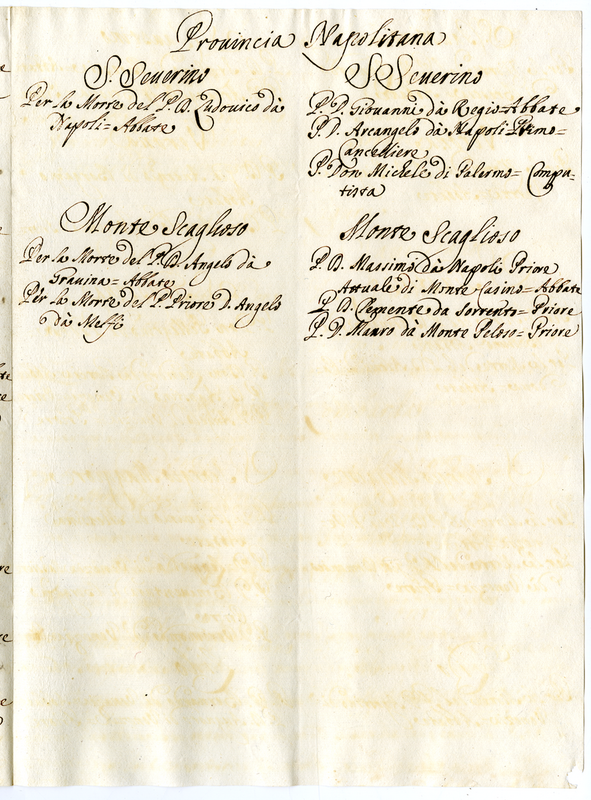 Provincia Napolitana
S. Severino
Per la Morte del P. D. Ludovico dà
Napoli = Abbate
Monte Scaglioso
Per la Morte del P. D. Angelo dà
Gravina = Abbate
Per la Morte del P. Priore D. Angelo
dà Melfi
S Severino
P. D. Giovanni dà Regio = Abbate
P. D. Arcangelo dà Napoli Primo =
Cancelliere
P. Don Michele di Palermo = Compu-
tista
Monte Scaglioso
P. D. Massimo dà Napoli Priore
Attuale di Monte Casino = Abbate
P. D. Clemente da Sorrento = Priore
P. D. Mauro dà Monte Peloso = Priore